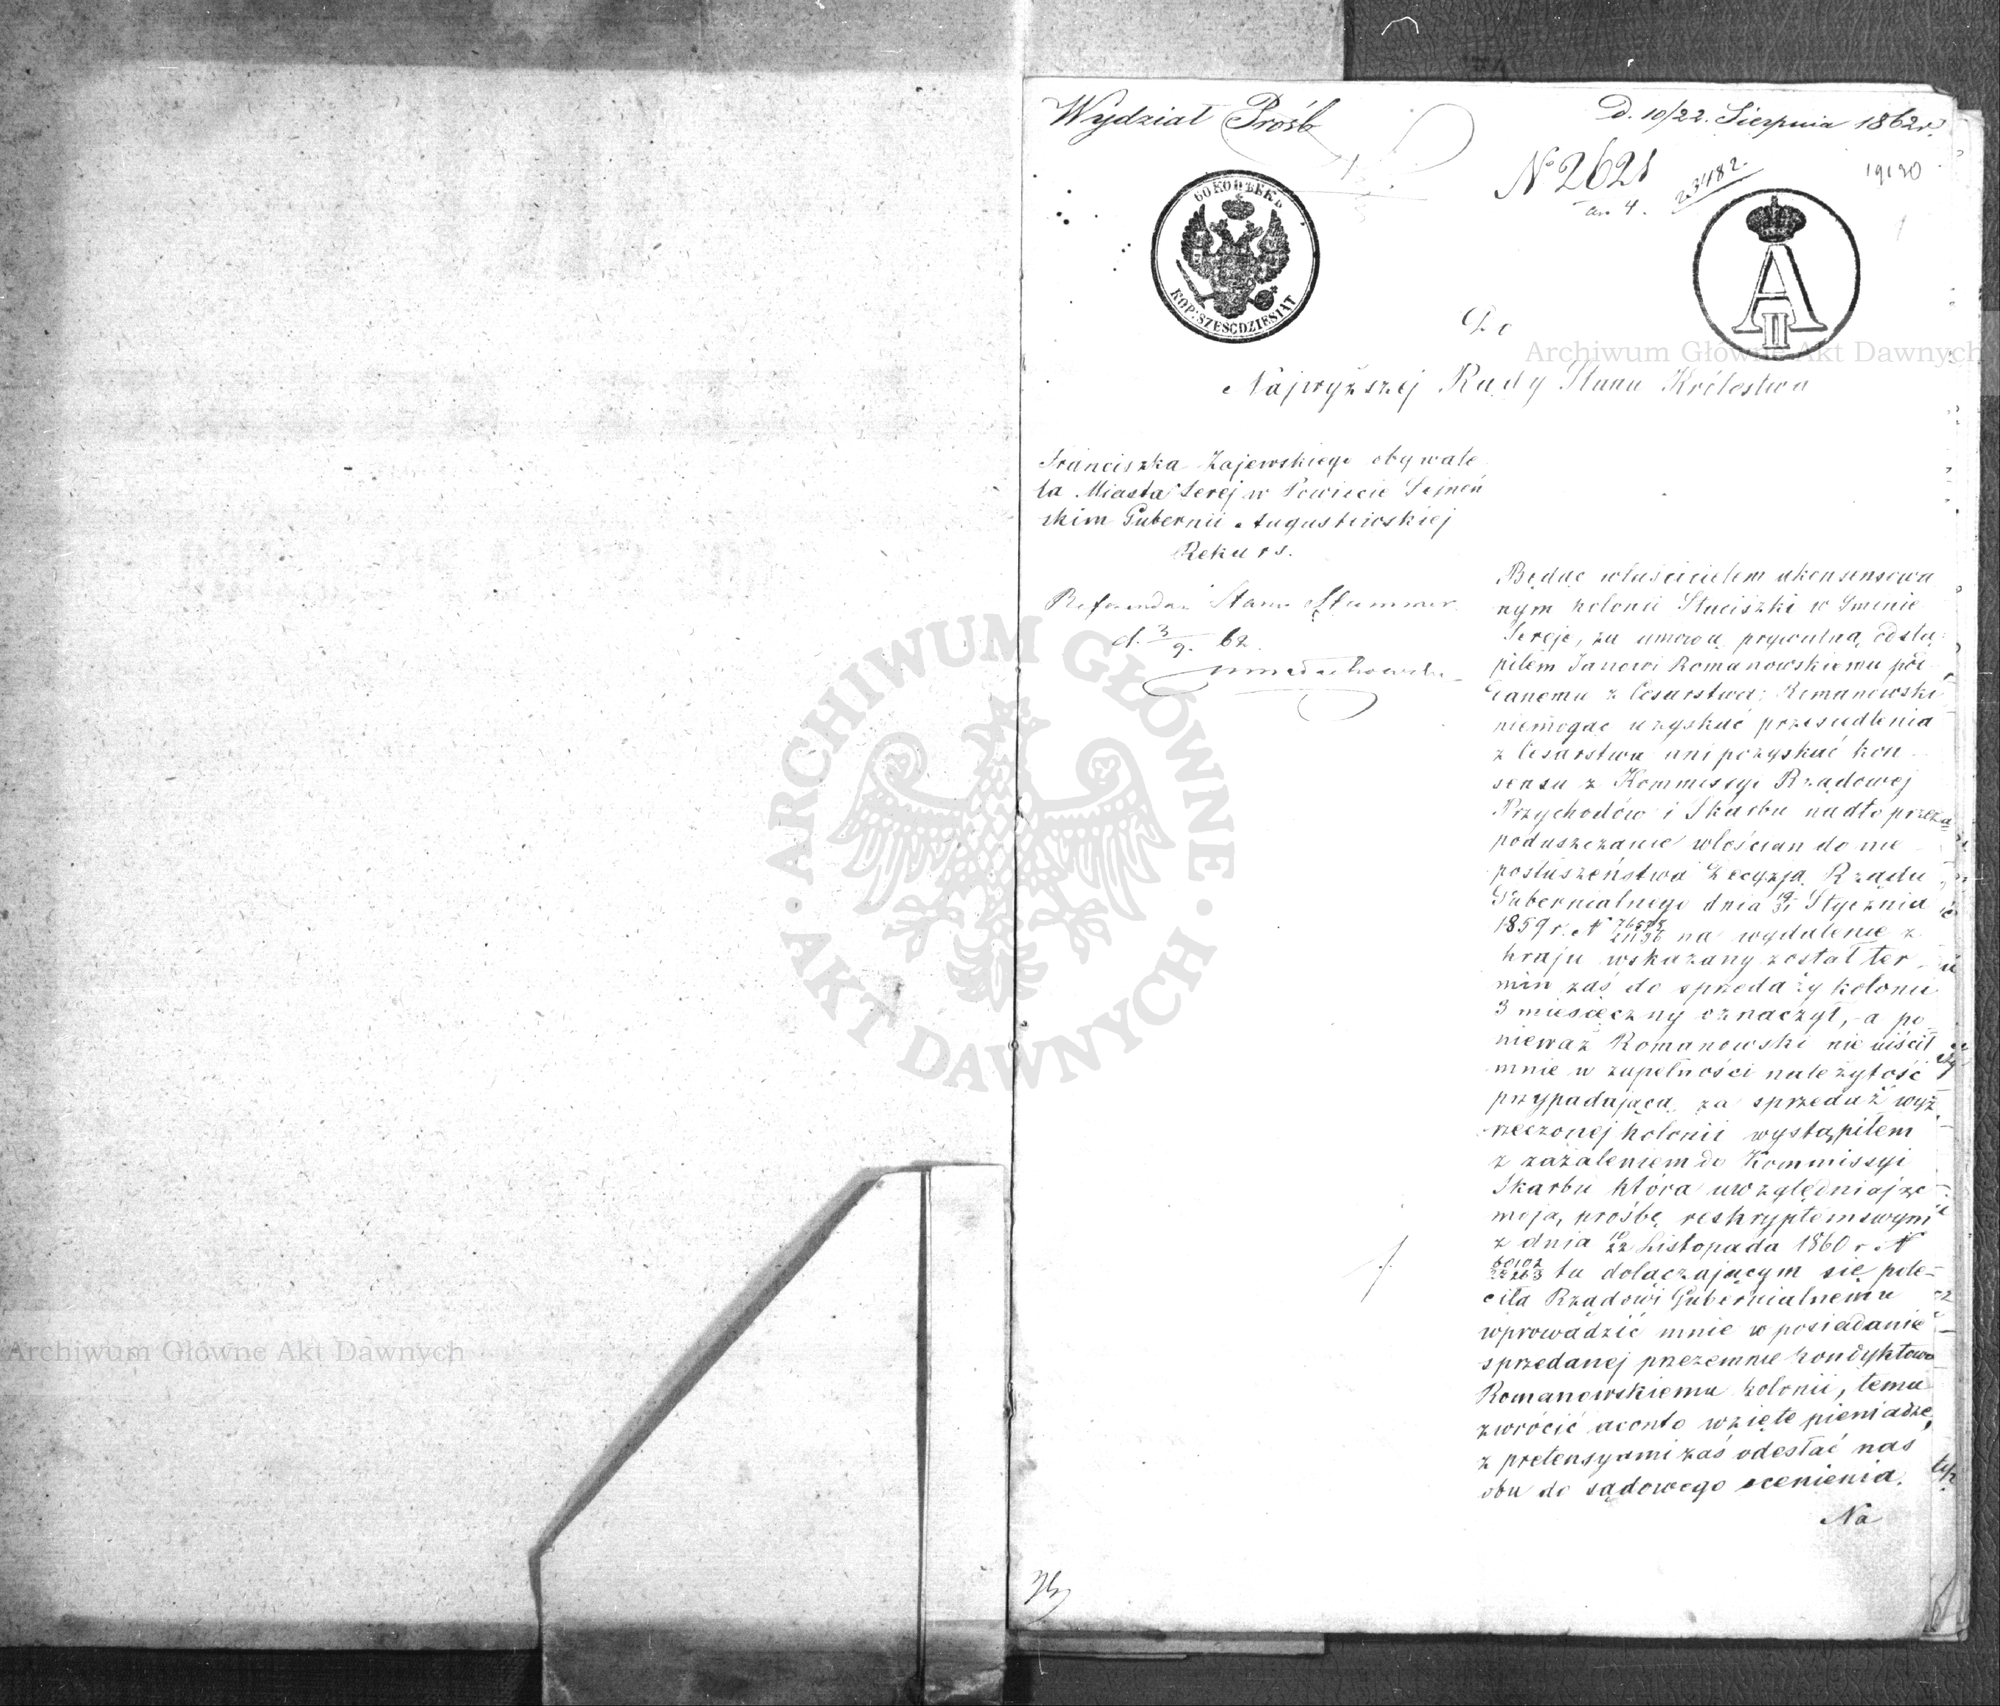 Wydział Prośb
D. 10/22. Sierpnia 1862 r.
N° 2621
23482.
19120
60 КОПѢЕКЪ
KOP: SZESĆDZIESIĄT
A II
Do
Najwyższej Rady Stanu Królestwa
Franciszka Zajewskiego obywate
la Miasta Serej w Powiecie Sejneń
skim Gubernii Augustowskiej
Rekurs.
Referendarz Stanu Stummer
d. 3/9. 62.
Będąc właścicielem ukonsensowa
nym kolonii Stuciszki w Gminie
Sereje, za umową prywatną odstą
piłem Janowi Romanowskiemu
z Cesarstwa; Romanowski
niemogąc uzyskać przesiedlenia
z Cesarstwa ani pozyskać kon
sensu z Kommissyi Rządowej
Przychodów i Skarbu nadto przez
poduszczanie włościan do nie
posłuszeństwa Decyzją Rządu
Gubernialnego dnia 19/31 Stycznia
1859 r. N na wydalenie z
kraju wskazany został ter
min zaś do sprzedaży kolonii
3 miesięczny oznaczył, a po
nieważ Romanowski nie uiścił
mnie w zupełności należytość
przypadającą za sprzedaż wyż
rzeczonej kolonii wystąpiłem
z zażaleniem do Kommissyi
Skarbu która uwzględniając
moją prośbę reskryptem swym
z dnia 10/22 Listopada 1860 r. N
60102/28263 tu dołączającym się pole-
ciła Rządowi Gubernialnemu
wprowadzić mnie w posiadanie
sprzedanej przezemnie kondyktowo
Romanowskiemu kolonii, temu
zwrócić aconto wzięte pieniądze,
z pretensyami zaś odesłać nas
obu do sądowego ocenienia.
Na
ARCHIWUM GŁÓWNE · AKT DAWNYCH ·
Archiwum Główne Akt Dawnych
Archiwum Główne Akt Dawnych